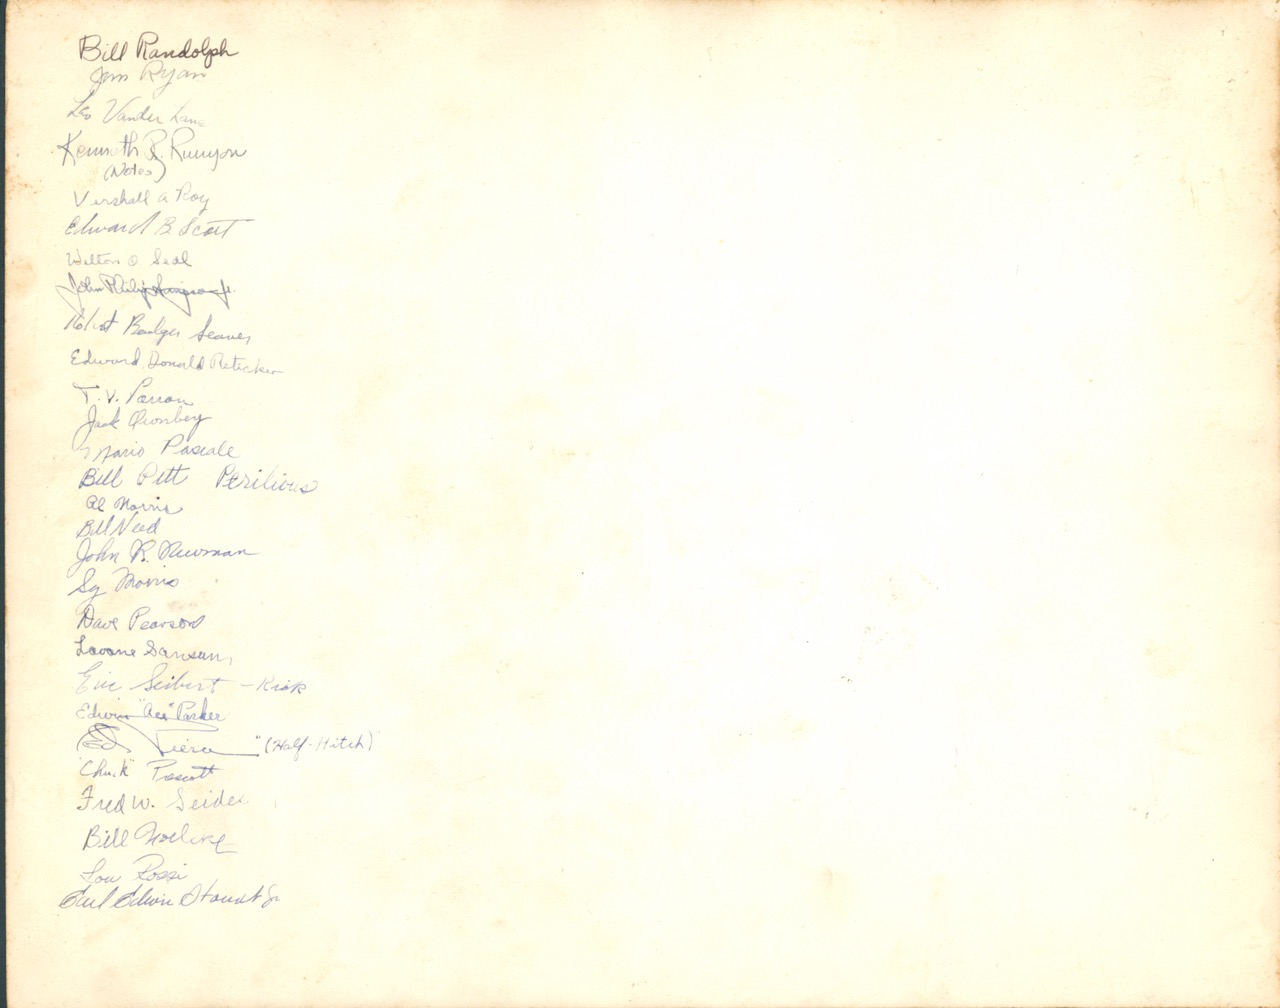 Bill Randolph
Jim Ryan
Leo Vander Lans
Kenneth R. Runyon
(Notes)
Vershall A Roy
Edward B. Scott
Wilton O Seal
John Philip
Robert Badger Seaver
Edward Donald Reticker
T. V.
Jack Quonbey
Mario Pascale
Bill Pitt
Al Morris
Bill Need
John R. Newman
Sy Morris
Dave Pearson
Lavone Sansun
Eric Seibert - Kirk
Edwin "Ace" Parker
Ed Pierce "(Half-Hitch)"
"Chuck"
Fred W. Seidel
Bill
Lou Rossi
Earl Edwin Jr